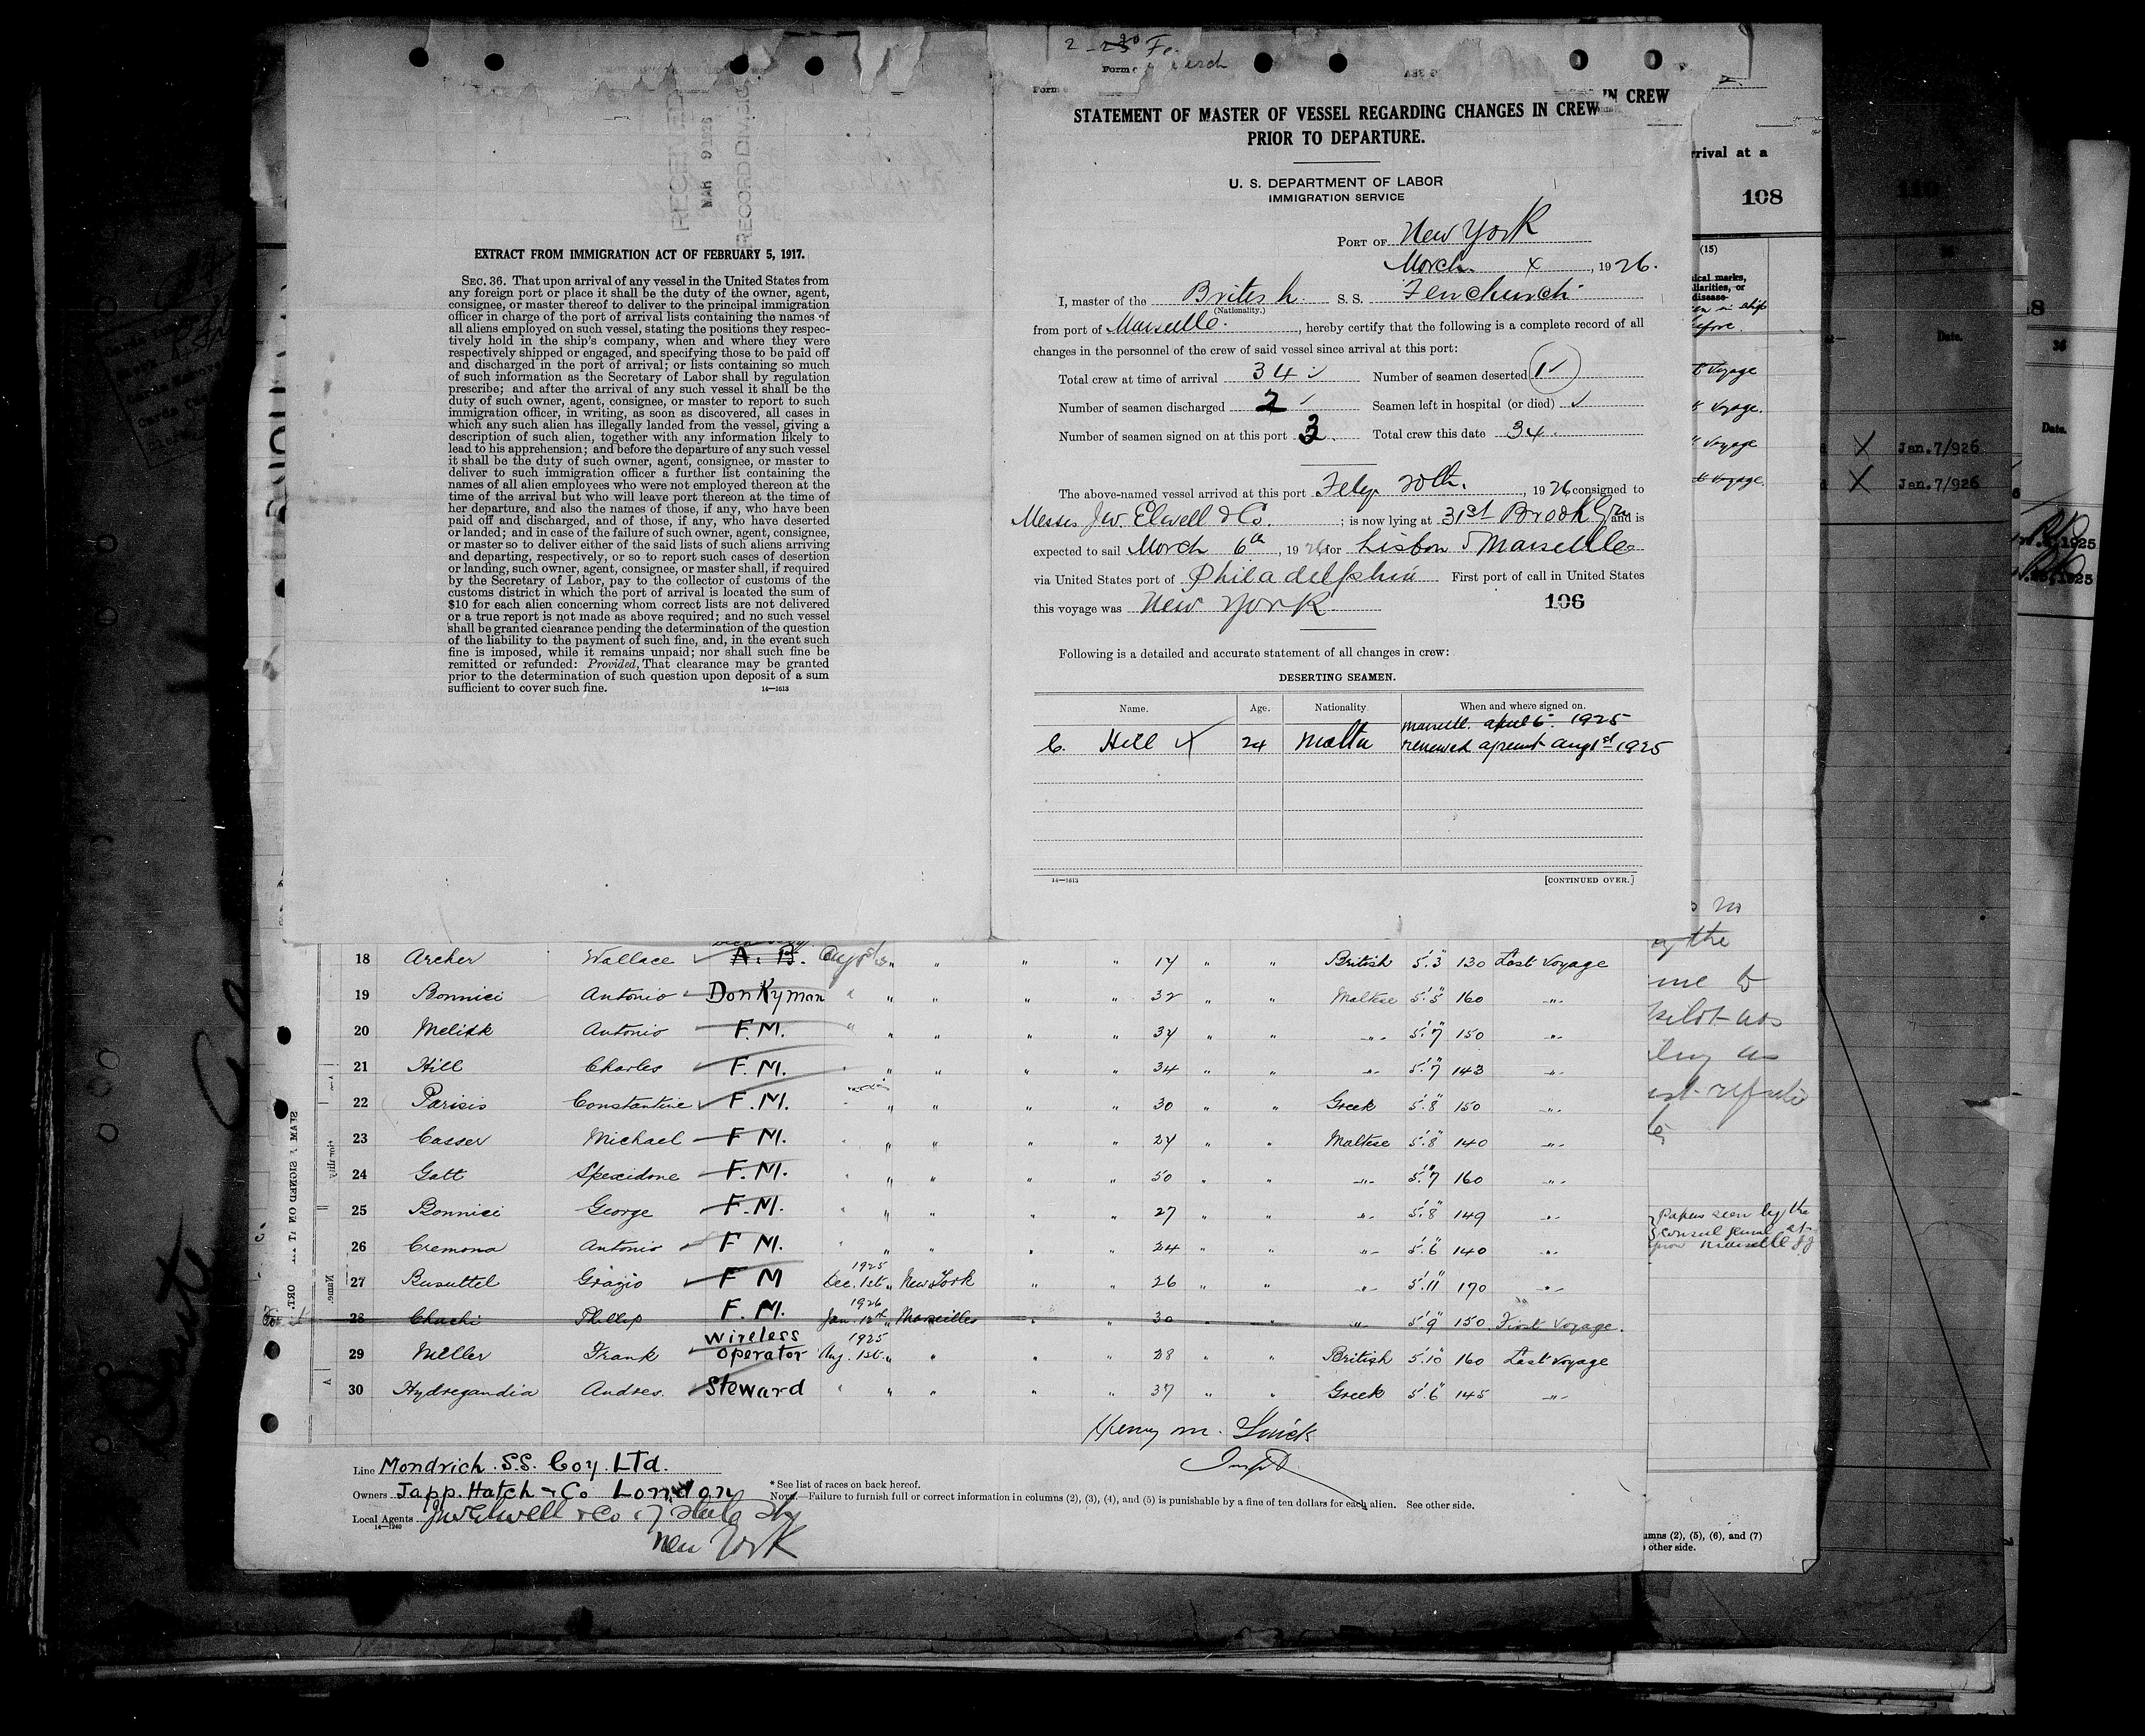 RECEIVED
MAR 9 1926
RECORD DIVISION
EXTRACT FROM IMMIGRATION ACT OF FEBRUARY 5, 1917.
SEC. 36. That upon arrival of any vessel in the United States from
any foreign port or place it shall be the duty of the owner, agent,
consignee, or master thereof to deliver to the principal immigration
officer in charge of the port of arrival lists containing the names of
all aliens employed on such vessel, stating the positions they respec-
tively hold in the ship's company, when and where they were
respectively shipped or engaged, and specifying those to be paid off
and discharged in the port of arrival; or lists containing so much
of such information as the Secretary of Labor shall by regulation
prescribe; and after the arrival of any such vessel it shall be the
duty of such owner, agent, consignee, or master to report to such
immigration officer, in writing, as soon as discovered, all cases in
which any such alien has illegally landed from the vessel, giving a
description of such alien, together with any information likely to
lead to his apprehension; and before the departure of any such vessel
it shall be the duty of such owner, agent, consignee, or master to
deliver to such immigration officer a further list containing the
names of all alien employees who were not employed thereon at the
time of the arrival but who will leave port thereon at the time of
her departure, and also the names of those, if any, who have been
paid off and discharged, and of those, if any, who have deserted
or landed; and in case of the failure of such owner, agent, consignee,
or master so to deliver either of the said lists of such aliens arriving
and departing, respectively, or so to report such cases of desertion
or landing, such owner, agent, consignee, or master shall, if required
by the Secretary of Labor, pay to the collector of customs of the
customs district in which the port of arrival is located the sum of
$10 for each alien concerning whom correct lists are not delivered
or a true report is not made as above required; and no such vessel
shall be granted clearance pending the determination of the question
of the liability to the payment of such fine, and, in the event such
fine is imposed, while it remains unpaid; nor shall such fine be
remitted or refunded: Provided, That clearance may be granted
prior to the determination of such question upon deposit of a sum
sufficient to cover such fine. 14—1613
Form
STATEMENT OF MASTER OF VESSEL REGARDING CHANGES IN CREW
PRIOR TO DEPARTURE.
U. S. DEPARTMENT OF LABOR
IMMIGRATION SERVICE
PORT OF New York
March 4, 1926.
I, master of the British S. S. Fenchurch
(Nationality.)
from port of Marseille., hereby certify that the following is a complete record of all
changes in the personnel of the crew of said vessel since arrival at this port:
Total crew at time of arrival 34 Number of seamen deserted 1
Number of seamen discharged 2 Seamen left in hospital (or died)
Number of seamen signed on at this port 3 Total crew this date 34
The above-named vessel arrived at this port Feby 20th., 1926 consigned to
Messrs J.W. Elwell & Co.; is now lying at 31st Brooklyn and is
expected to sail March 6th, 1926, for Lisbon & Marseille
via United States port of Philadelphia First port of call in United States
this voyage was New York 106
Following is a detailed and accurate statement of all changes in crew:
DESERTING SEAMEN.
Name. Age. Nationality When and where signed on.
C. Hill X 24 Malta Marseill. April 6. 1925
renewed agremt Aug 1st 1925
14—1613 [CONTINUED OVER.]
IN CREW
rrival at a
108
(15)
ical marks,
liarities, or
disease
Voyage
Voyage.
Voyage
Voyage.
110
Date.
X Jan.7/926
X Jan.7/926
36
Date.
18 Archer Wallace A. B. " " " " 17 " " British 5'.3" 130 Last Voyage
19 Bonnici Antonio Donkyman " " " " " 32 " " Maltese 5'.5" 160 "
20 Melisk Antonio F.M. " " " " " 34 " " " 5'.7" 150 "
21 Hill Charles F.M. " " " " " 34 " " " 5'.7" 143 "
22 Parisis Constantine F.M. " " " " " 30 " " Greek 5'.8" 150 "
23 Casser Michael F M. " " " " " 24 " " Maltese 5'.8" 140 "
24 Gatt Spexidone F.M. " " " " " 50 " " " 5'.7" 160 "
25 Bonnici George F.M. " " " " " 27 " " " 5'.8" 149 "
26 Cremona Antonio F M. " " " " " 24 " " " 5'.6" 140 "
27 Busuttel Grazio F M 1925 Dec. 1st " New York " " 26 " " " 5'.11" 170 "
28 Chachi Phillip F. M. 1926 Jan. 12th " Marseilles " 30 " " " 5'.9" 150 First Voyage.
29 Miller Frank Wireless operator 1925 Aug. 1st " " " " 28 " " British 5'.10" 160 Last Voyage
30 Hydregandia Andres. Steward " " " " " 37 " " Greek 5'.6" 145 "
Papers seen by the
Henry M.
Line Mondrich. S.S. Coy. LTd.
Owners Japp. Hatch & Co London
Local Agents J W Elwell & Co 17 State St
New York
14—1240
* See list of races on back hereof.
NOTE.—Failure to furnish full or correct information in columns (2), (3), (4), and (5) is punishable by a fine of ten dollars for each alien. See other side.
umns (2), (5), (6), and (7)
other side.